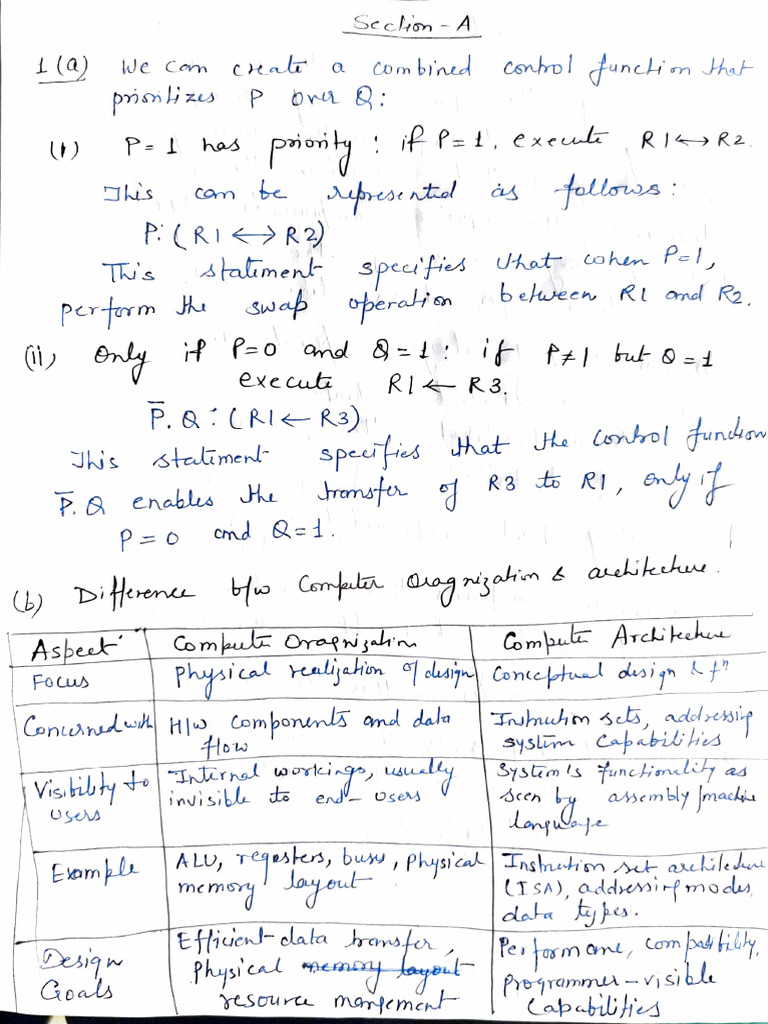 Section - A
1(a) We can create a combined control function that
prioritizes P over Q:
(i) P = 1 has priority : if P = 1, execute R1 ↔ R2.
This can be represented as follows :
P: ( R1 ↔ R2)
This statement specifies that when P=1,
perform the swap operation between R1 and R2.
(ii) Only if P=0 and Q = 1 : if P≠1 but Q = 1
execute R1 ← R3.
P̅. Q : ( R1 ← R3)
This statement specifies that the control function
P̅. Q enables the transfer of R3 to R1, only if
P = 0 and Q=1.
(b) Difference b/w Computer Oragnization & architecture.
Aspect Compute Oragnization Compute Architecture
Focus Physical realization of design Conceptual design & fⁿ
Concerned with H/w components and data flow Instruction sets, addressing system capabilities
Visibility to users Internal workings, usually invisible to end-users System's functionality as seen by assembly/machine language
Example ALU, regesters, buses, physical memory layout Instruction set architecture (ISA), addressing modes, data types.
Design Goals Efficient data transfer, physical memory layout resource mangement Performance, compatibility, programmer-visible capabilities